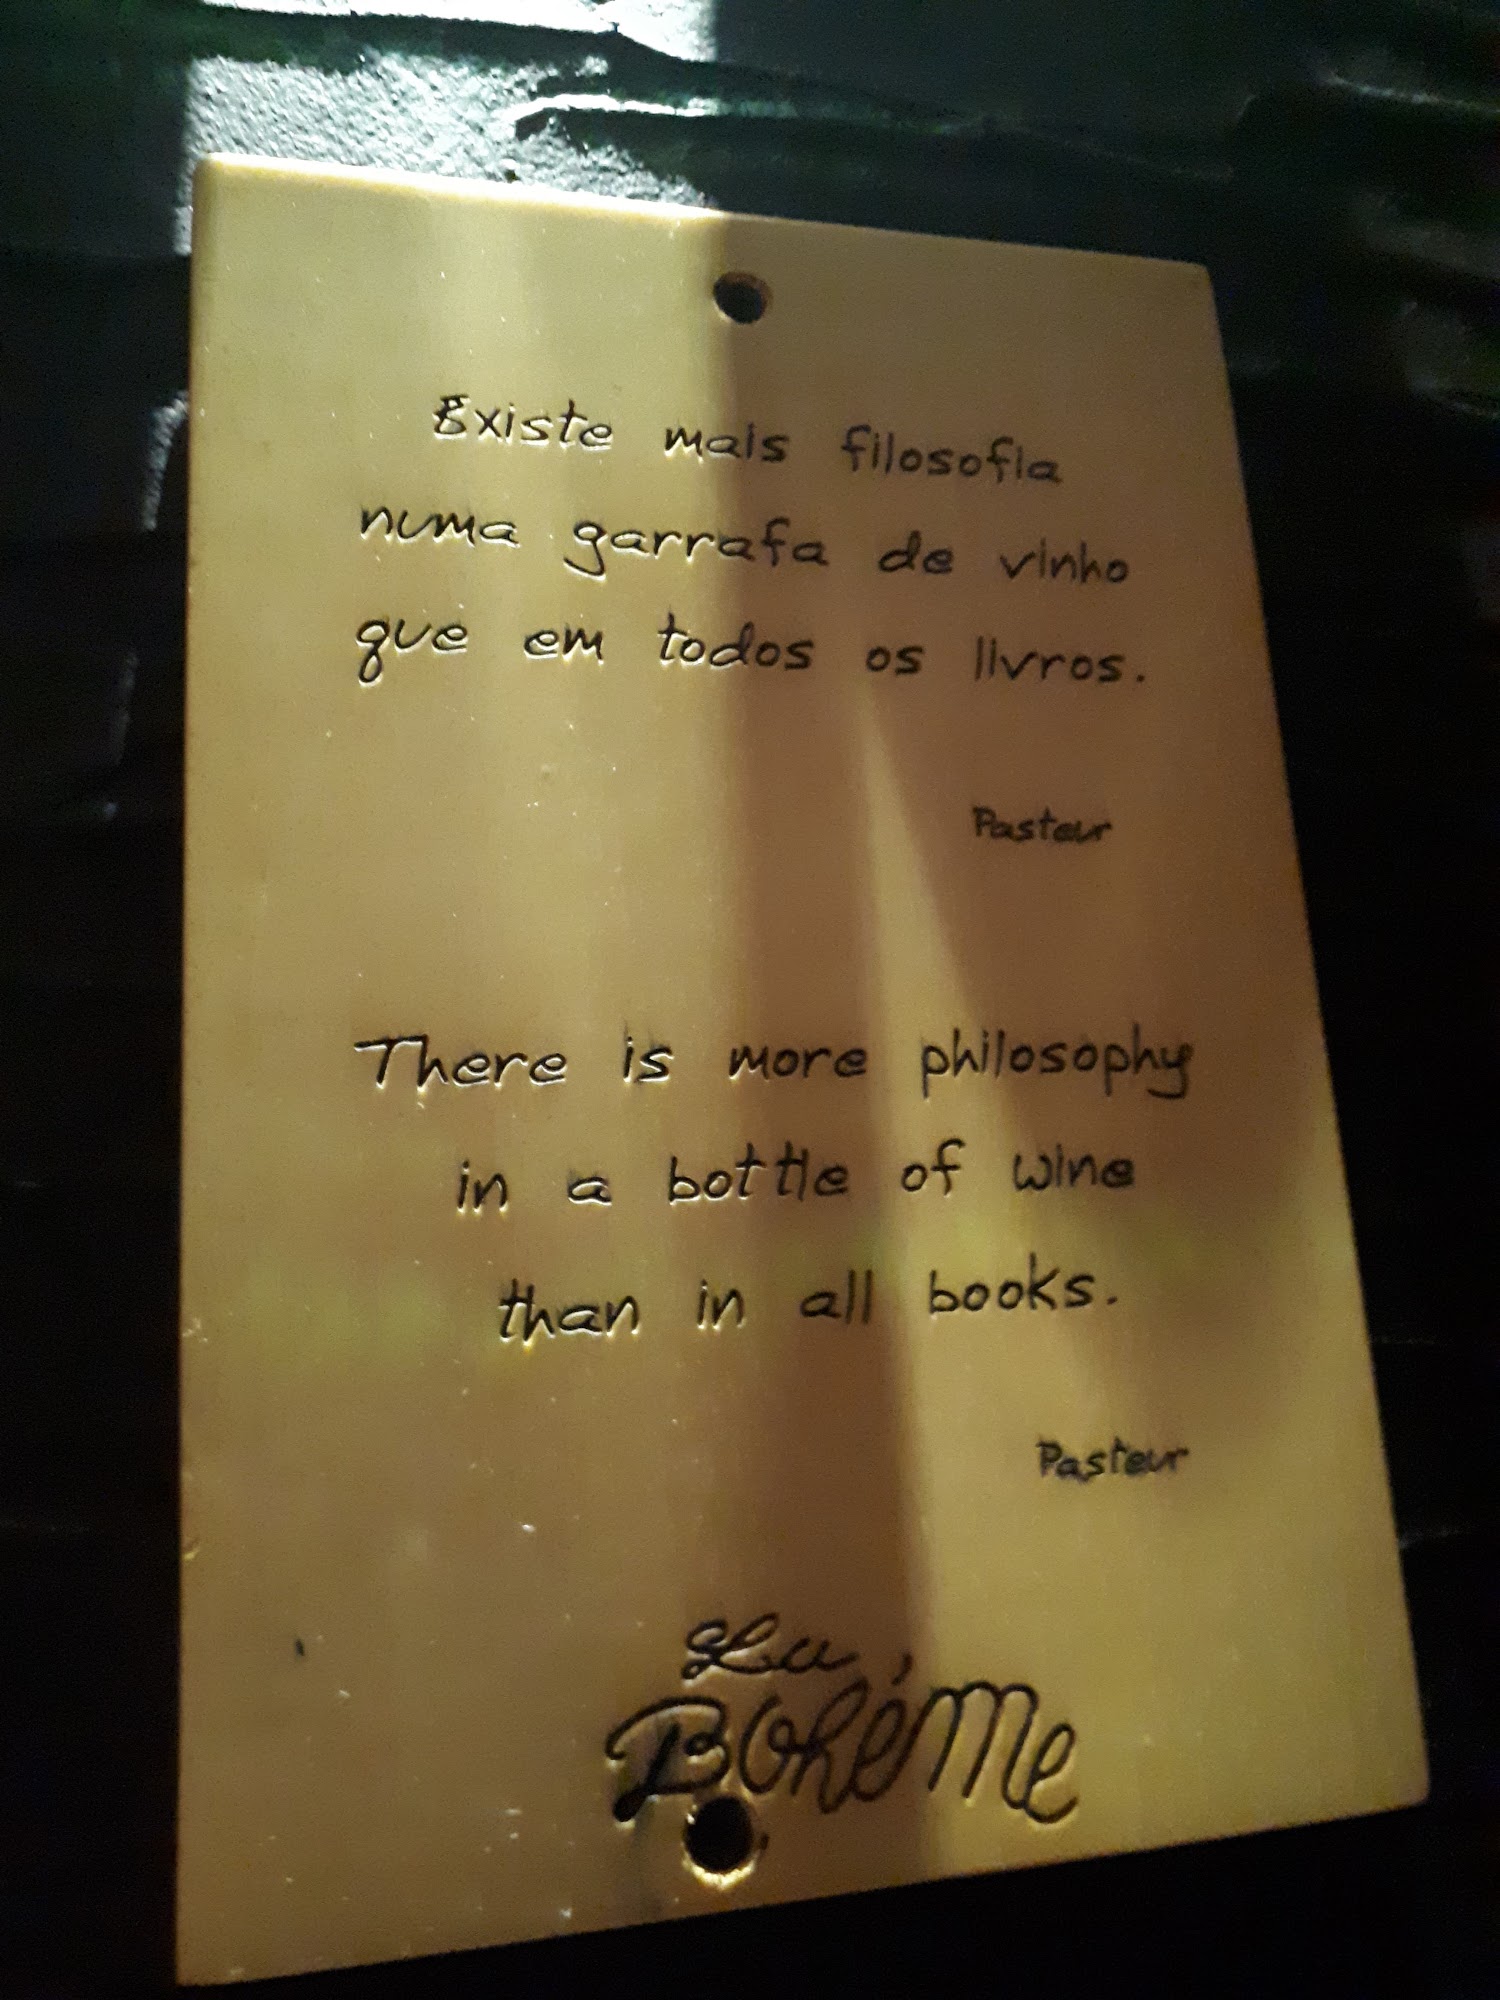 Existe mais filosofia
numa garrafa de vinho
que em todos os livros.
Pasteur
There is more philosophy
in a bottle of wine
than in all books.
Pasteur
La
Bohéme